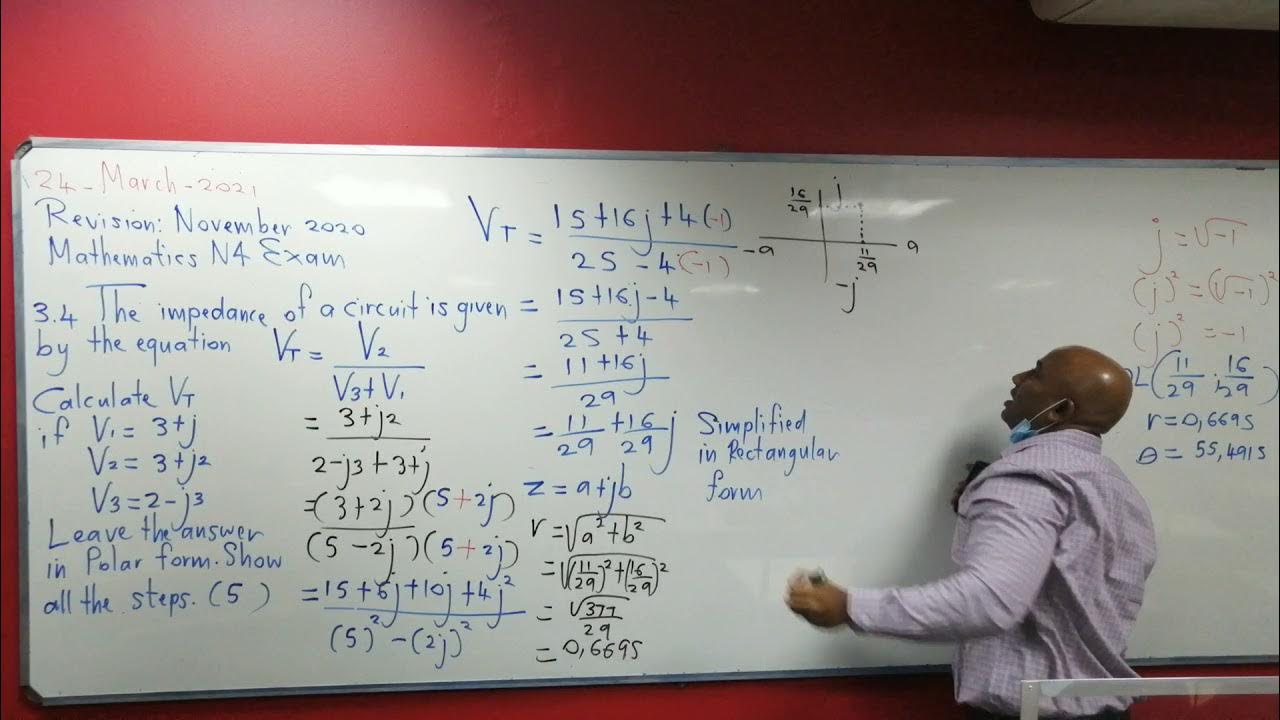 24-March-2021
Revision: November 2020
Mathematics N4 Exam
3.4 The impedance of a circuit is given
by the equation V_T = V₂/(V₃+V₁)
Calculate V_T
if V₁ = 3+j
V₂ = 3+j2
V₃ = 2-j3
Leave the answer
in Polar form. Show
all the steps. (5)
= (3+j2)/(2-j3+3+j)
= (3+2j)(5+2j)/(5-2j)(5+2j)
= (15+6j+10j+4j²)/((5)²-(2j)²)
V_T = (15+16j+4(-1))/(25-4(-1))
= (15+16j-4)/(25+4)
= (11+16j)/29
= 11/29 + 16/29 j Simplified
in Rectangular
form
z = a+jb
r = √(a²+b²)
= √((11/29)²+(16/29)²)
= √377/29
= 0,6695
j
16/29
-a
a
11/29
-j
j = √-1
(j)² = (√-1)²
(j)² = -1
OL(11/29 ; 16/29)
r = 0,6695
θ = 55,4915